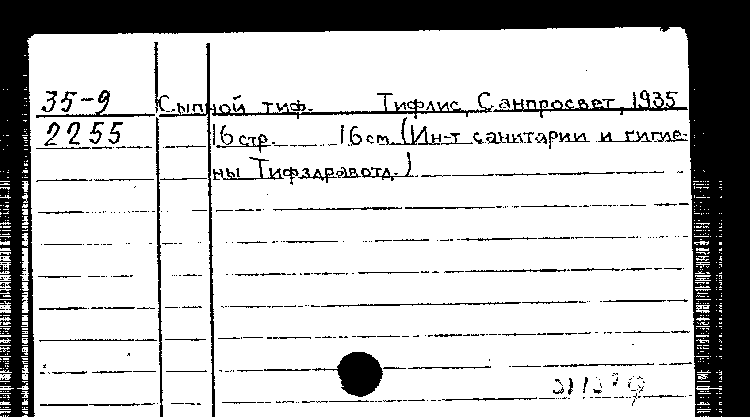 35-9 Сыпной тиф. Тифлис, Санпросвет, 1935
2255 16 стр. 16 cm. (Ин-т санитарии и гигие-
ны Тифздравотд.)